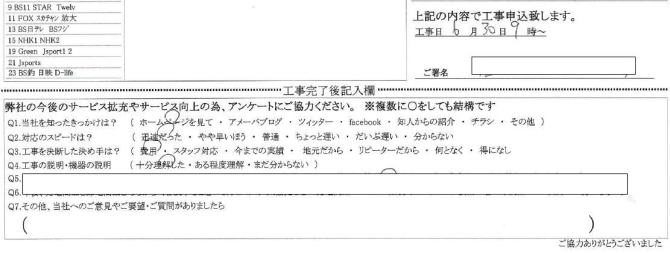 9 BS11 STAR Twelv
11 FOX スカチャン 放大
13 BS日テレ BSフジ
15 NHK1 NHK2
19 Green Jsport1 2
21 Jsports
23 BS釣 日映 D-life
上記の内容で工事申込致します。
工事日 6 月 30日 9 時～
ご署名
工事完了後記入欄
弊社の今後のサービス拡充やサービス向上の為、アンケートにご協力ください。 ※複数に○をしても結構です
Q1.当社を知ったきっかけは? ( ホームページを見て ・ アメーバブログ ・ ツィッター ・ facebook ・ 知人からの紹介 ・ チラシ ・ その他 )
Q2.対応のスピードは? ( 迅速だった ・ やや早いほう ・ 普通 ・ ちょっと遅い ・ だいぶ遅い ・ 分からない
Q3.工事を決断した決め手は? ( 費用 ・ スタッフ対応 ・ 今までの実績 ・ 地元だから ・ リピーターだから ・ 何となく ・ 得になし
Q4.工事の説明・機器の説明 ( 十分理解した ・ ある程度理解 ・ まだ分からない )
Q5.
Q6.
Q7.その他、当社へのご意見やご要望・ご質問がありましたら
( )
ご協力ありがとうございました